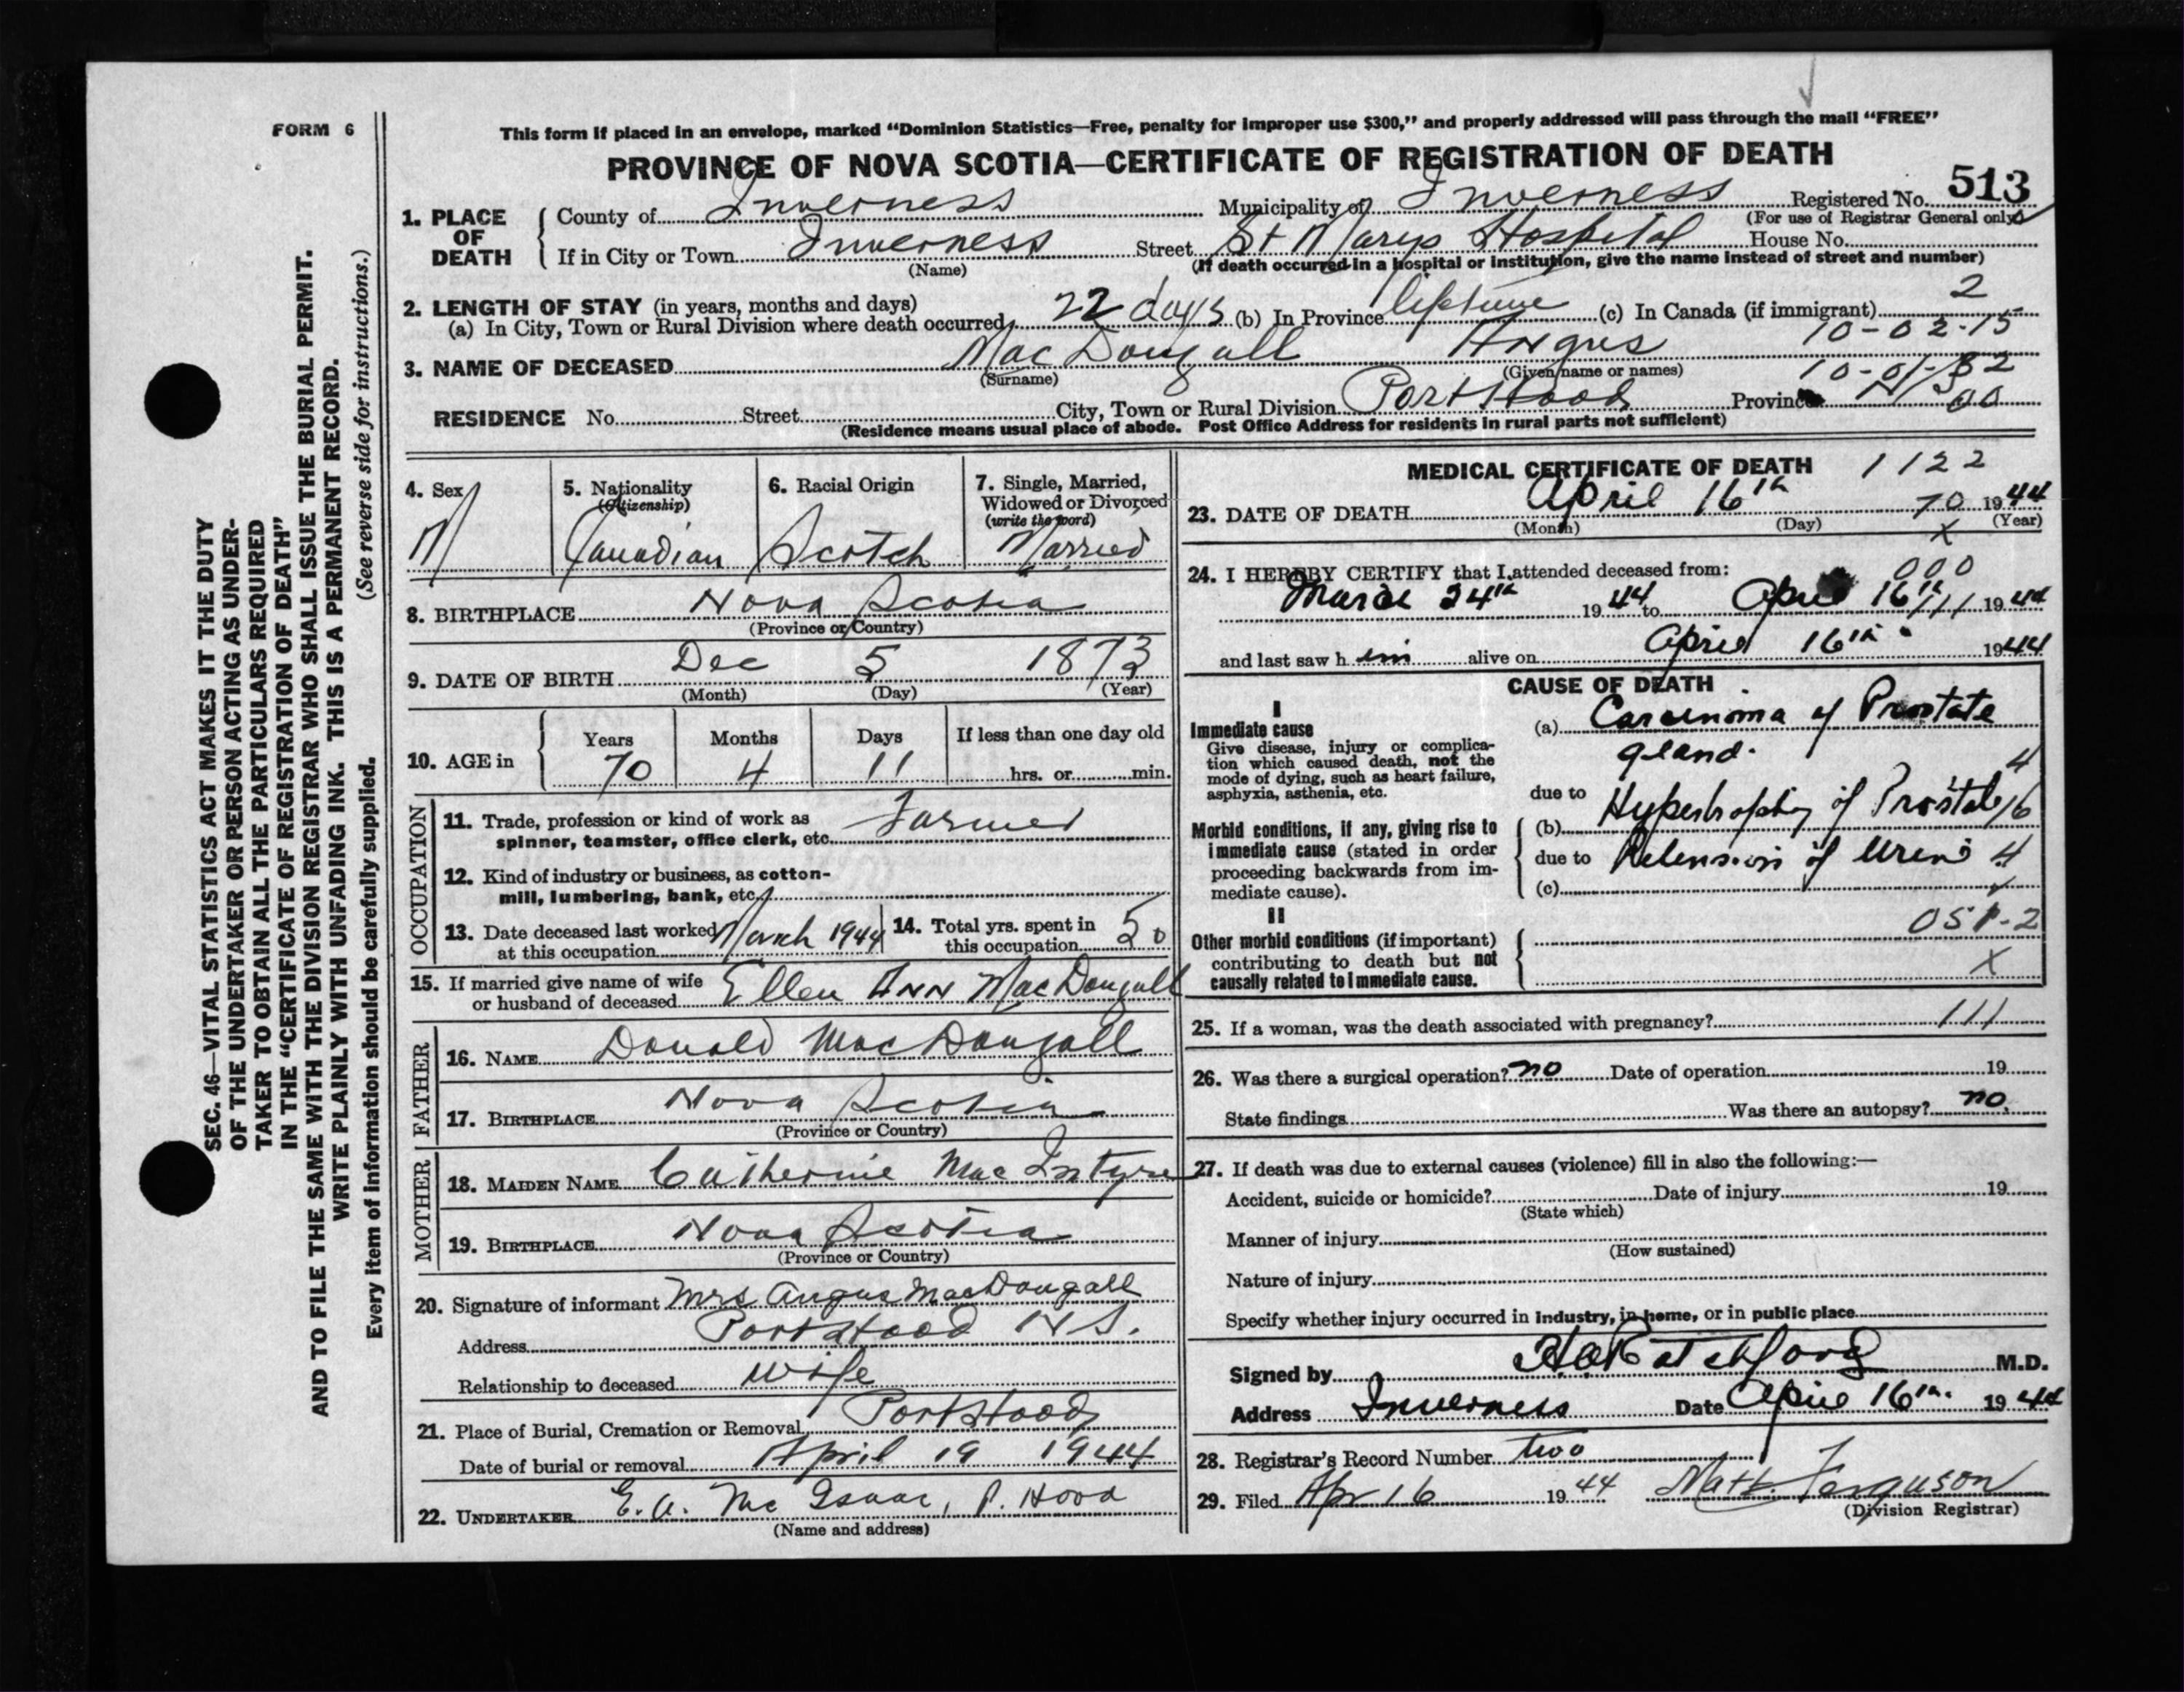 FORM 6
This form if placed in an envelope, marked "Dominion Statistics—Free, penalty for improper use $300," and properly addressed will pass through the mail "FREE"
PROVINCE OF NOVA SCOTIA—CERTIFICATE OF REGISTRATION OF DEATH
1. PLACE OF DEATH { County of Inverness Municipality of Inverness Registered No. 513
(For use of Registrar General only)
If in City or Town Inverness Street St Marys Hospital House No.
(Name) (If death occurred in a hospital or institution, give the name instead of street and number)
2. LENGTH OF STAY (in years, months and days) 2
(a) In City, Town or Rural Division where death occurred 22 days (b) In Province lifetime (c) In Canada (if immigrant)
10-02-15
3. NAME OF DECEASED MacDougall Angus
(Surname) (Given name or names) 10-01-82
RESIDENCE No. Street City, Town or Rural Division Port Hood Province N S 00
(Residence means usual place of abode. Post Office Address for residents in rural parts not sufficient)
4. Sex M
5. Nationality (Citizenship) Canadian
6. Racial Origin Scotch
7. Single, Married, Widowed or Divorced (write the word) Married
8. BIRTHPLACE Nova Scotia
(Province or Country)
9. DATE OF BIRTH Dec 5 1873
(Month) (Day) (Year)
10. AGE in { Years 70 Months 4 Days 11 If less than one day old hrs. or min.
OCCUPATION
11. Trade, profession or kind of work as
spinner, teamster, office clerk, etc. Farmer
12. Kind of industry or business, as cotton-
mill, lumbering, bank, etc.
13. Date deceased last worked at this occupation March 1944 14. Total yrs. spent in this occupation 50
15. If married give name of wife
or husband of deceased Ellen Ann MacDougall
FATHER
16. NAME Donald MacDougall
17. BIRTHPLACE Nova Scotia
(Province or Country)
MOTHER
18. MAIDEN NAME Catherine MacIntyre
19. BIRTHPLACE Nova Scotia
(Province or Country)
20. Signature of informant Mrs Angus MacDougall
Address Port Hood N S.
Relationship to deceased wife
21. Place of Burial, Cremation or Removal Port Hood
Date of burial or removal April 19 1944
22. UNDERTAKER E. A. McIsaac, P. Hood
(Name and address)
MEDICAL CERTIFICATE OF DEATH 1122
23. DATE OF DEATH April 16th 70 1944
(Month) (Day) (Year)
X
24. I HEREBY CERTIFY that I attended deceased from: 000
March 24th 1944 to April 16th 111 1944
and last saw him alive on April 16th 1944
CAUSE OF DEATH
I
Immediate cause
Give disease, injury or complica-
tion which caused death, not the
mode of dying, such as heart failure,
asphyxia, asthenia, etc.
(a) Carcinoma of Prostate
gland. 4
Morbid conditions, if any, giving rise to
immediate cause (stated in order
proceeding backwards from im-
mediate cause).
due to
(b) Hypertrophy of Prostate 16
due to Retension of Urens 4
(c)
II
Other morbid conditions (if important)
contributing to death but not
causally related to immediate cause.
051-2
X
25. If a woman, was the death associated with pregnancy? 111
26. Was there a surgical operation? no Date of operation 19
State findings Was there an autopsy? no.
27. If death was due to external causes (violence) fill in also the following:—
Accident, suicide or homicide? Date of injury 19
(State which)
Manner of injury
(How sustained)
Nature of injury
Specify whether injury occurred in industry, in home, or in public place
Signed by H.A. Ratchford M.D.
Address Inverness Date April 16th. 1944
28. Registrar's Record Number two
29. Filed Apr 16 1944 Matt. Ferguson
(Division Registrar)
SEC. 46—VITAL STATISTICS ACT MAKES IT THE DUTY
OF THE UNDERTAKER OR PERSON ACTING AS UNDER-
TAKER TO OBTAIN ALL THE PARTICULARS REQUIRED
IN THE "CERTIFICATE OF REGISTRATION OF DEATH"
AND TO FILE THE SAME WITH THE DIVISION REGISTRAR WHO SHALL ISSUE THE BURIAL PERMIT.
WRITE PLAINLY WITH UNFADING INK. THIS IS A PERMANENT RECORD.
(See reverse side for instructions.)
Every item of information should be carefully supplied.